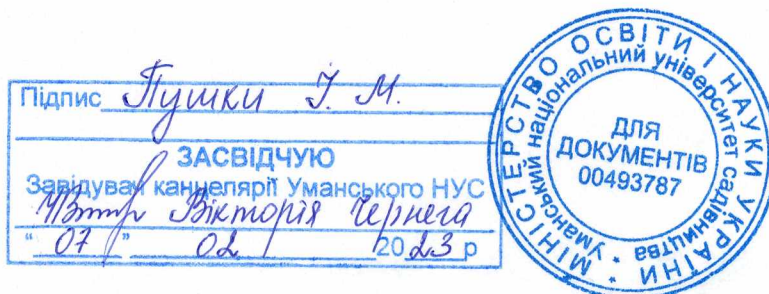 Підпис Пушки І. М.
ЗАСВІДЧУЮ
Завідувач канцелярії Уманського НУС
Вікторія Чернега
"07" 02 2023 р
МІНІСТЕРСТВО ОСВІТИ І НАУКИ УКРАЇНИ *
Уманський національний університет садівництва *
ДЛЯ
ДОКУМЕНТІВ
00493787